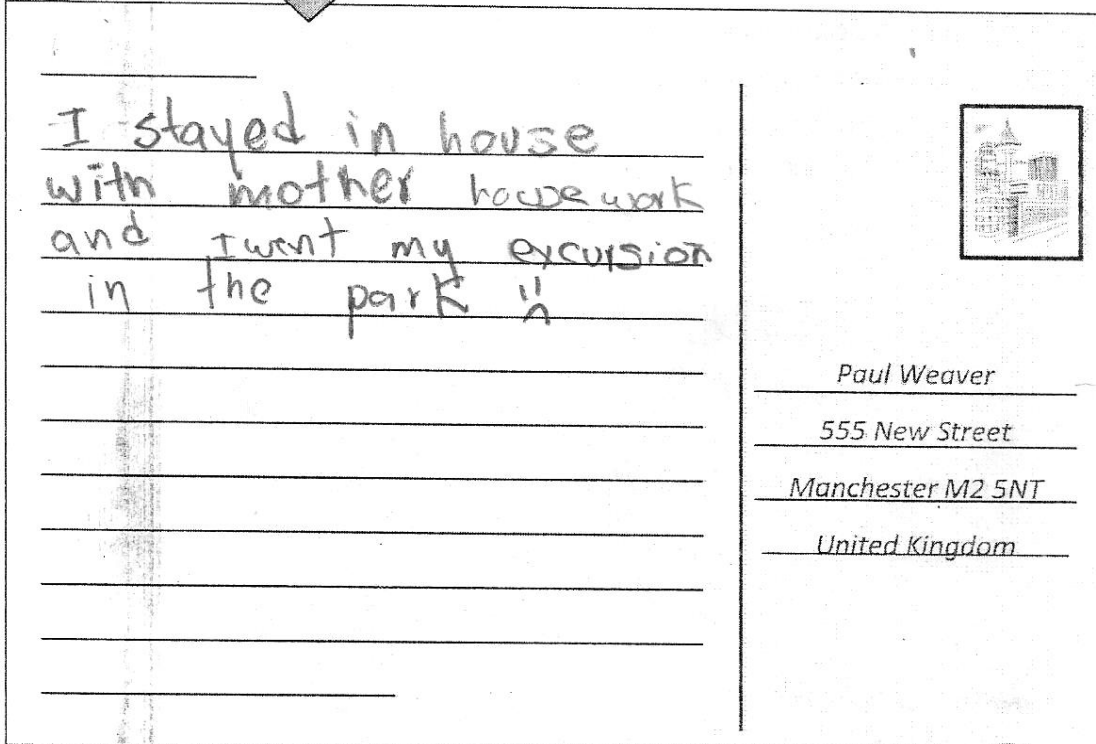 I stayed in house
with mother housework
and I went my excursion
in the park
Paul Weaver
555 New Street
Manchester M2 5NT
United Kingdom